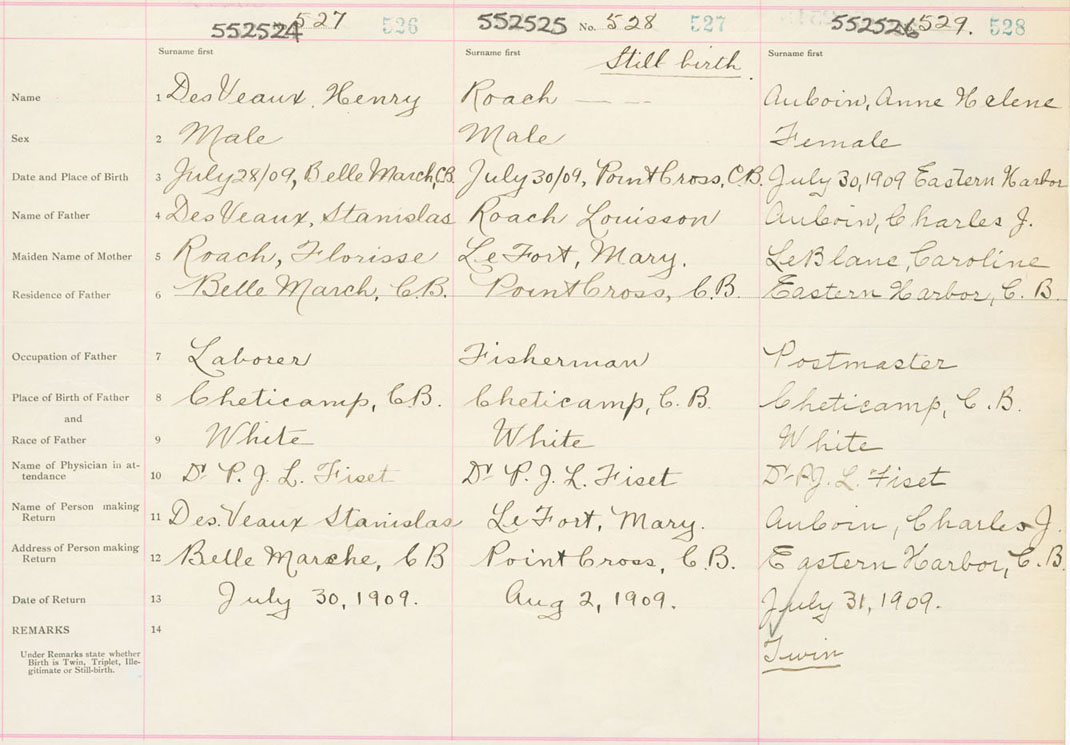 552524 527 526 552525 No. 528 527 552526 529. 528
Surname first Surname first Surname first
Still birth.
Name 1 DesVeaux, Henry Roach — — — AuCoin, Anne Helene
Sex 2 Male Male Female
Date and Place of Birth 3 July 28/09, Belle March, C.B. July 30/09, Point Cross, C.B. July 30, 1909 Eastern Harbor
Name of Father 4 DesVeaux, Stanislas Roach Louisson AuCoin, Charles J.
Maiden Name of Mother 5 Roach, Florisse LeFort, Mary. LeBlanc, Caroline
Residence of Father 6 Belle March, C.B. Point Cross, C.B. Eastern Harbor, C. B.
Occupation of Father 7 Laborer Fisherman Postmaster
Place of Birth of Father 8 Cheticamp, C.B. Cheticamp, C. B. Cheticamp, C. B.
and
Race of Father 9 White White White
Name of Physician in at-
tendance 10 Dr P. J. L. Fiset Dr P. J. L. Fiset Dr P. J. L. Fiset
Name of Person making
Return 11 Des.Veaux Stanislas LeFort, Mary. AuCoin, Charles J.
Address of Person making
Return 12 Belle Marche, C B Point Cross, C.B. Eastern Harbor, C. B.
Date of Return 13 July 30, 1909. Aug 2, 1909. July 31, 1909.
REMARKS 14
Twin
Under Remarks state whether
Birth is Twin, Triplet, Ille-
gitimate or Still-birth.